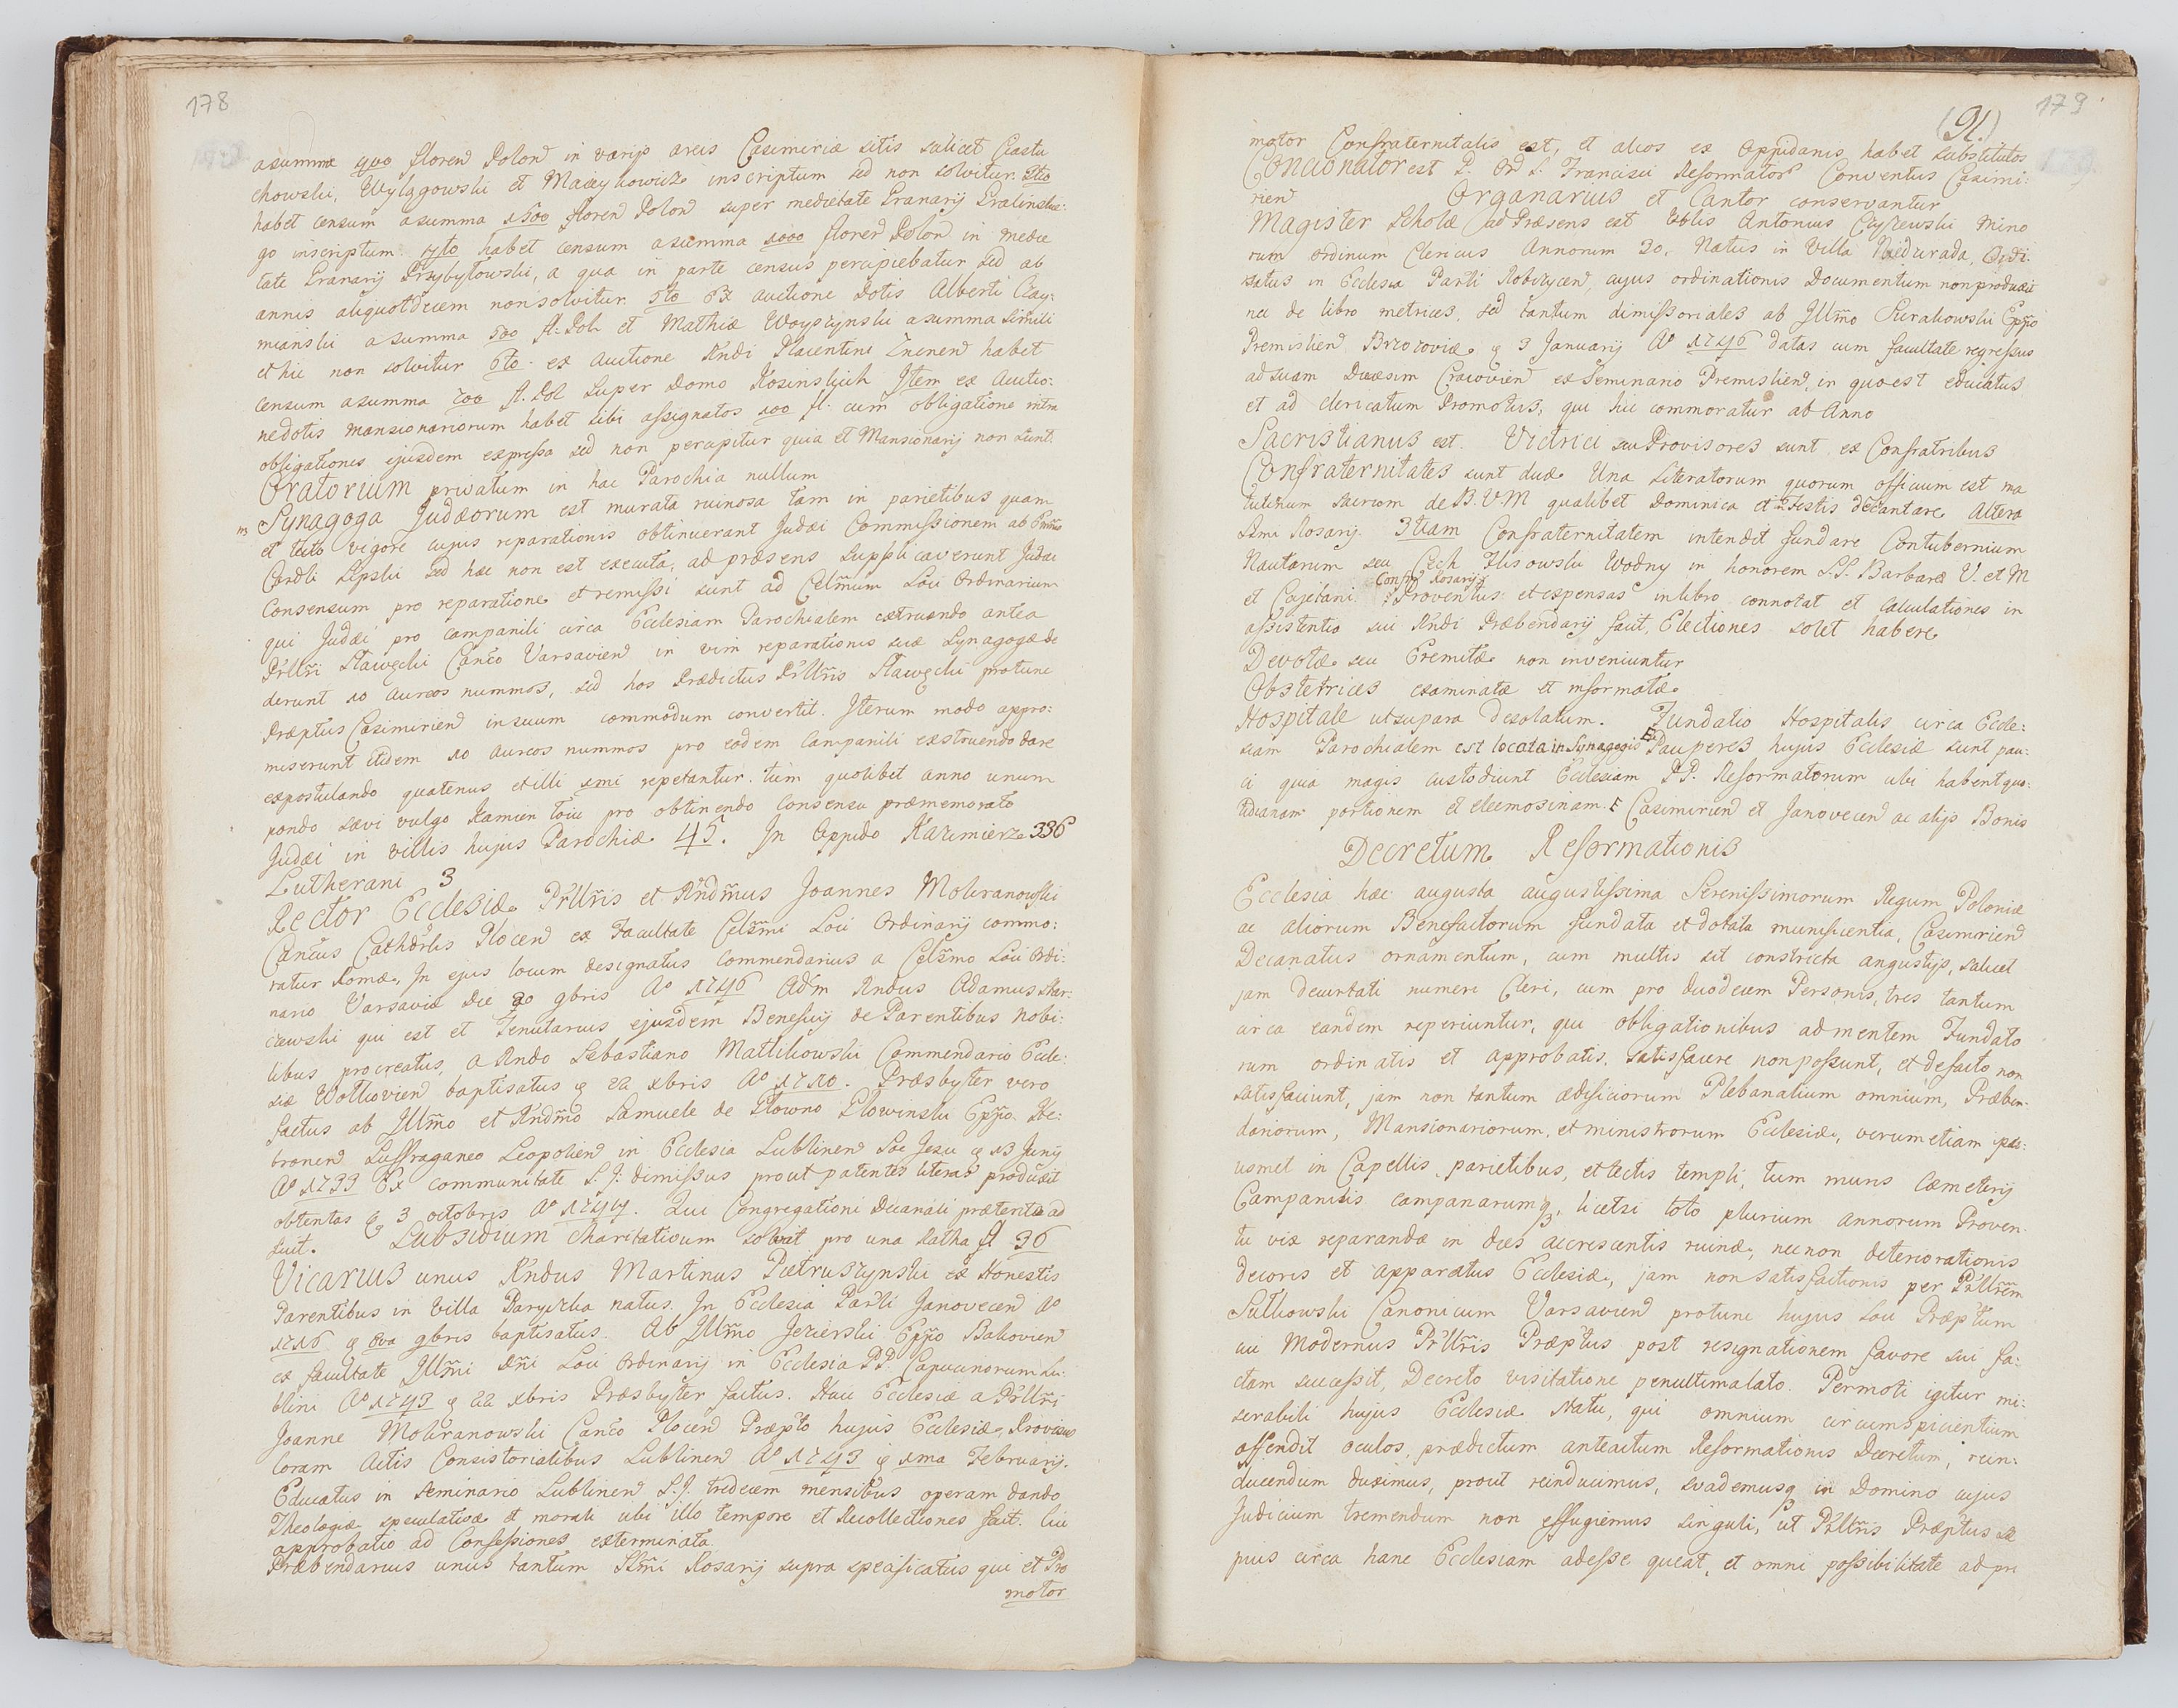 178
asumma 400 floren Polon in varijs areis Casimiriæ sitis scilicet Czastu
chowski, Wylągowski et Macieykowicz inscriptum sed non solvitur. 3tio
habet censum a summa 1500 floren Polon super medietate Granarij
go inscriptum. 4to habet censum a summa 1000 floren Polon in medie
tate Granarij Przybyłowski, a qua in parte census percipiebatur sed ab
annis aliquot decem non solvitur. 5to Ex auctione Dotis Alberti Czay:
mianski a summa 500 fl. Pol. et Mathiæ Woyszynski a summa simili
et hic non solvitur 6to. ex auctione Rndi Placentini habet
censum a summa 700 fl. Pol super Domo Kosinskich Item ex Auctio:
ne dotis Mansionariorum habet sibi assignatos 100 fl. cum obligatione intra
obligationes ejusdem expressa sed non percipitur quia et Mansionarij non sunt.
Oratorium privatum in hac Parochia nullum
Synagoga Judæorum est murata ruinosa tam in parietibus quam
in et tecto vigore cujus reparationis obtinuerant Judæi Commissionem ab Emmo
Cardli Lipski sed hæc non est executa, ad præsens supplicaverunt Judæi
Consensum pro reparatione et remissi sunt ad Celsmum Loci Ordinarium
qui Judæi pro campanili circa Ecclesiam Parochialem extruendo antea
Prllri Sławęcki Canco Varsavien in vim reparationis suæ Synagogæ de
derunt 10 aureos nummos, sed hos Prædictus Prllris Sławęcki protunc
Præptus Casimirien in suum commodum convertit. Iterum modo appro:
miserunt itidem 10 aureos nummos pro eodem Campanili exstruendo dare
expostulando quatenus et illi 1mi repetantur. tum quotibet anno unum
pondo sævi vulgo Kamien łoiu pro obtinendo Consensu præmemorato
Judæi in villis hujus Parochiæ 45. In Oppido Kazimierz 336
Lutherani 3
Rector Ecclesiæ Prllris et Rndmus Joannes Mokranowski
Cancus Cathdrlis Plocen ex Facultate Celsmi Loci Ordinarij commo:
ratur Romæ, In ejus locum designatus Commendarius a Celsmo Loci Ordi:
nario Varsaviæ Die 20 9bris Ao 1746 Adm Rndus Adamus Skar:
czewski qui est et Tenutarius ejusdem Beneficij de Parentibus nobi:
libus procreatus, a Rndo Sebastiano Mattikowski Commendario Eccle:
siæ Wolkovien baptisatus 22 xbris Ao 1710. Præsbyter vero
factus ab Illmo et Rndmo Samuele de Głowno Głowinski Eppo He:
bronen Suffraganeo Leopolien in Ecclesia Lublinen Soc Jesu 13 Junij
Ao 1733 Ex communitate S. J. dimissus prout patentes literas produxit
obtentas 3 octobris Ao 1744. Qui Congregationi Decanali præteritæ ad
fuit. Subsidium charitativum solvit pro una Ratha fl 36
Vicarius unus Rndus Martinus Pietruszynski ex Honestis
Parentibus in Villa Parysska natus. In Ecclesia Parli Janovecen Ao
1716 8va 9bris baptisatus. Ab Illmo Jezierski Eppo Bakovien
ex facultate Illmi Dni Loci Ordinarij in Ecclesia PP. Capucinorum Lu:
blini Ao 1743 22 xbris Præsbyter factus. Huic Ecclesiæ a Prllri
Joanne Mokranowski Canco Plocen Præpto hujus Ecclesiæ, Provisus
coram Actis Consistorialibus Lublinen Ao 1743 1ma Februarij.
Educatus in Seminario Lublinen S. J. tredecem mensibus operam dando
Theologiæ speculativæ et morali ubi illo tempore et Recollectiones fecit. Cui
approbatio ad Confessiones exterminata.
Præbendarius unus tantum SSmi Rosarij supra specificatus qui et Pro
motor
179
(91.)
motor Confraternitatis est, et alios ex Oppidanis habet substitutos
Concionator est P. Ord S. Francisci Reformator Conventus Casimi:
rien Organarius et Cantor conservantur
Magister Scholæ ad Præsens est Nblis Antonius Czyżewski Mino
rum ordinum Clericus Annorum 30, Natus in Villa Niedurada, Bapti
satus in Ecclesia Parli Robczycen, cujus ordinationis Documentum non produxit
nec de libro metrices, sed tantum dimissoriales ab Illmo Sierakowski Eppo
Premislien Brzozoviæ 3 Januarij Ao 1746 datas cum facultate regressus
ad suam Diæcesim Cracovien ex Seminario Premislien, in quo est educatus
et ad clericatum Promotus, qui hic commoratur ab Anno
Sacristianus est. Victrici seu Provisores sunt ex Confratribus
Confraternitates sunt duæ. Una Literatorum quorum officium est ma
tutinum sacrum de B. V M qualibet Dominica et in Festis decantare Altera
SSmi Rosarij. 3tiam Confraternitatem intendit fundare Contubernium
Nautarum seu Cech Flisowski Wodny in honorem S.S. Barbaræ V. et M
Confr. Rosarij
et Cajetani. Proventus et expensas in libro connotat et calculationes in
assistentia sui Rndi Præbendarij facit, Electiones solet habere
Devotæ seu Eremitæ non inveniuntur
Obstetrices examinatæ et informatæ
Hospitale ut supara Desolatum. Fundatio Hospitalis circa Eccle:
siam Parochialem est locata in Synagogis Pauperes hujus Ecclesiæ sunt pau:
ci quia magis custodiunt Ecclesiam PP. Reformatorum ubi habent quo:
tidianam portionem et eleemosinam. Casimirien et Janovecen ac alijs Bonis
Decretum Reformationis
Ecclesia hæc augusta augustissima Serenissimorum Regum Poloniæ
ac aliorum Benefactorum fundata et dotata munificentia, Casimirien
Decanatus ornamentum, cum multis sit constricta angustijs, scilicet
jam decurtati numeri Cleri, cum pro duodecem Personis, tres tantum
circa eandem reperiuntur, qui obligationibus ad mentem Fundato
rum ordinatis et approbatis, satisfacere non possunt, et de facto non
satisfaciunt, jam non tantum ædificiorum Plebanalium omnium, Præben-
dariorum, Mansionariorum, et ministrorum Ecclesiæ, verum etiam ipsi:
usmet in Capellis, parietibus, et tectis templi, tum muris Cæmeterij
Campanilis campanarumq, licet si toto plurium annorum Proven-
tu vix reparandæ in dies accrescentis ruinæ, nec non deteriorationis
decoris et apparatus Ecclesiæ, jam non satisfactionis per Prllrem
Sułkowski Canonicum Varsavien protunc hujus Loci Præptum
cui Modernus Prllris Præptus post resignationem favore sui fa:
ctam successit, Decreto visitatione penultima lato. Permoti igitur mi:
serabili hujus Ecclesiæ statu, qui omnium circumspicientium
offendit oculos, prædictum anteactum Reformationis Decretum, rein:
ducendum duximus, prout reinducimus, svademusq in Domino cujus
Judicium tremendum non effugiemus singuli, ut Prllris Præptus sæ
pius circa hanc Ecclesiam adesse queat, et omni possibilitate ad pri